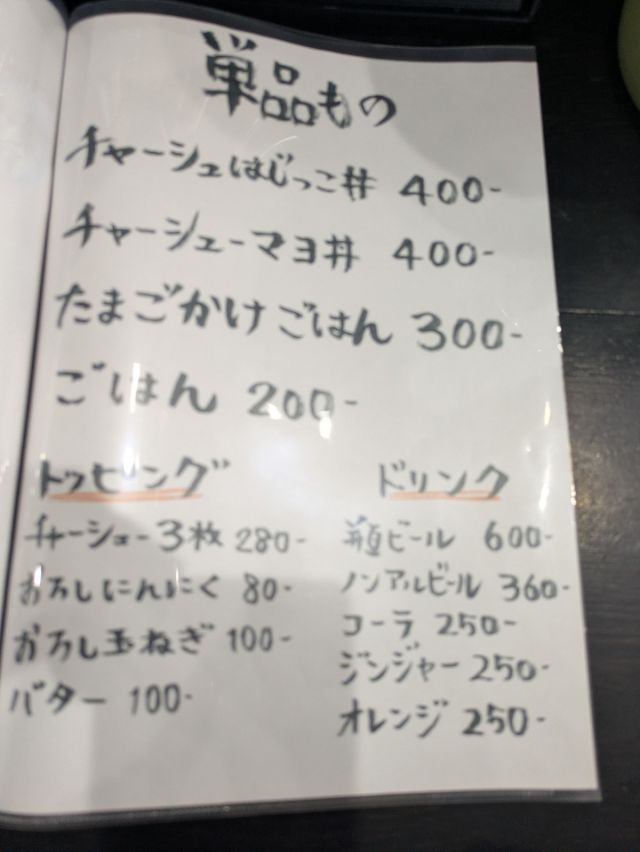 単品もの
チャーシューはじっこ丼 400-
チャーシューマヨ丼 400-
たまごかけごはん 300-
ごはん 200-
トッピング
チャーシュー3枚 280-
おろしにんにく 80-
おろし玉ねぎ 100-
バター 100-
ドリンク
瓶ビール 600-
ノンアルビール 360-
コーラ 250-
ジンジャー 250-
オレンジ 250-